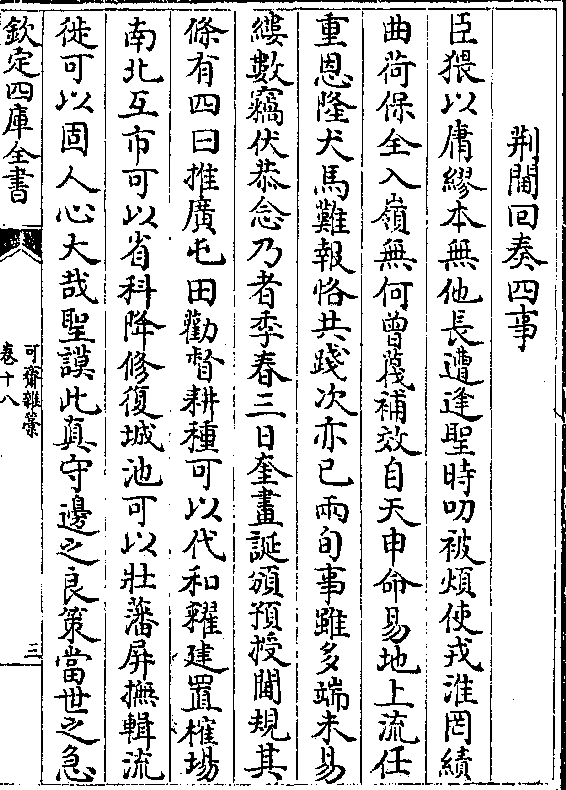 荆閫回奏四事
臣猥以庸繆本無他長遭逢聖時叨被煩使戎淮罔績
曲荷保全入嶺無何曾蔑補效自天申命易地上流任
重恩隆犬馬難報恪共踐次亦已兩旬事雖多端未易
縷數竊伏恭念乃者季春三日奎畫誕頒預授閫規其
條有四曰推廣屯田勸督耕種可以代和糴建置榷場
南北互市可以省科降修復城池可以壯藩屏撫輯流
徙可以固人心大哉聖謨此真守邊之良策當世之急
欽定四庫全書
可齋雜藳
卷十八
三